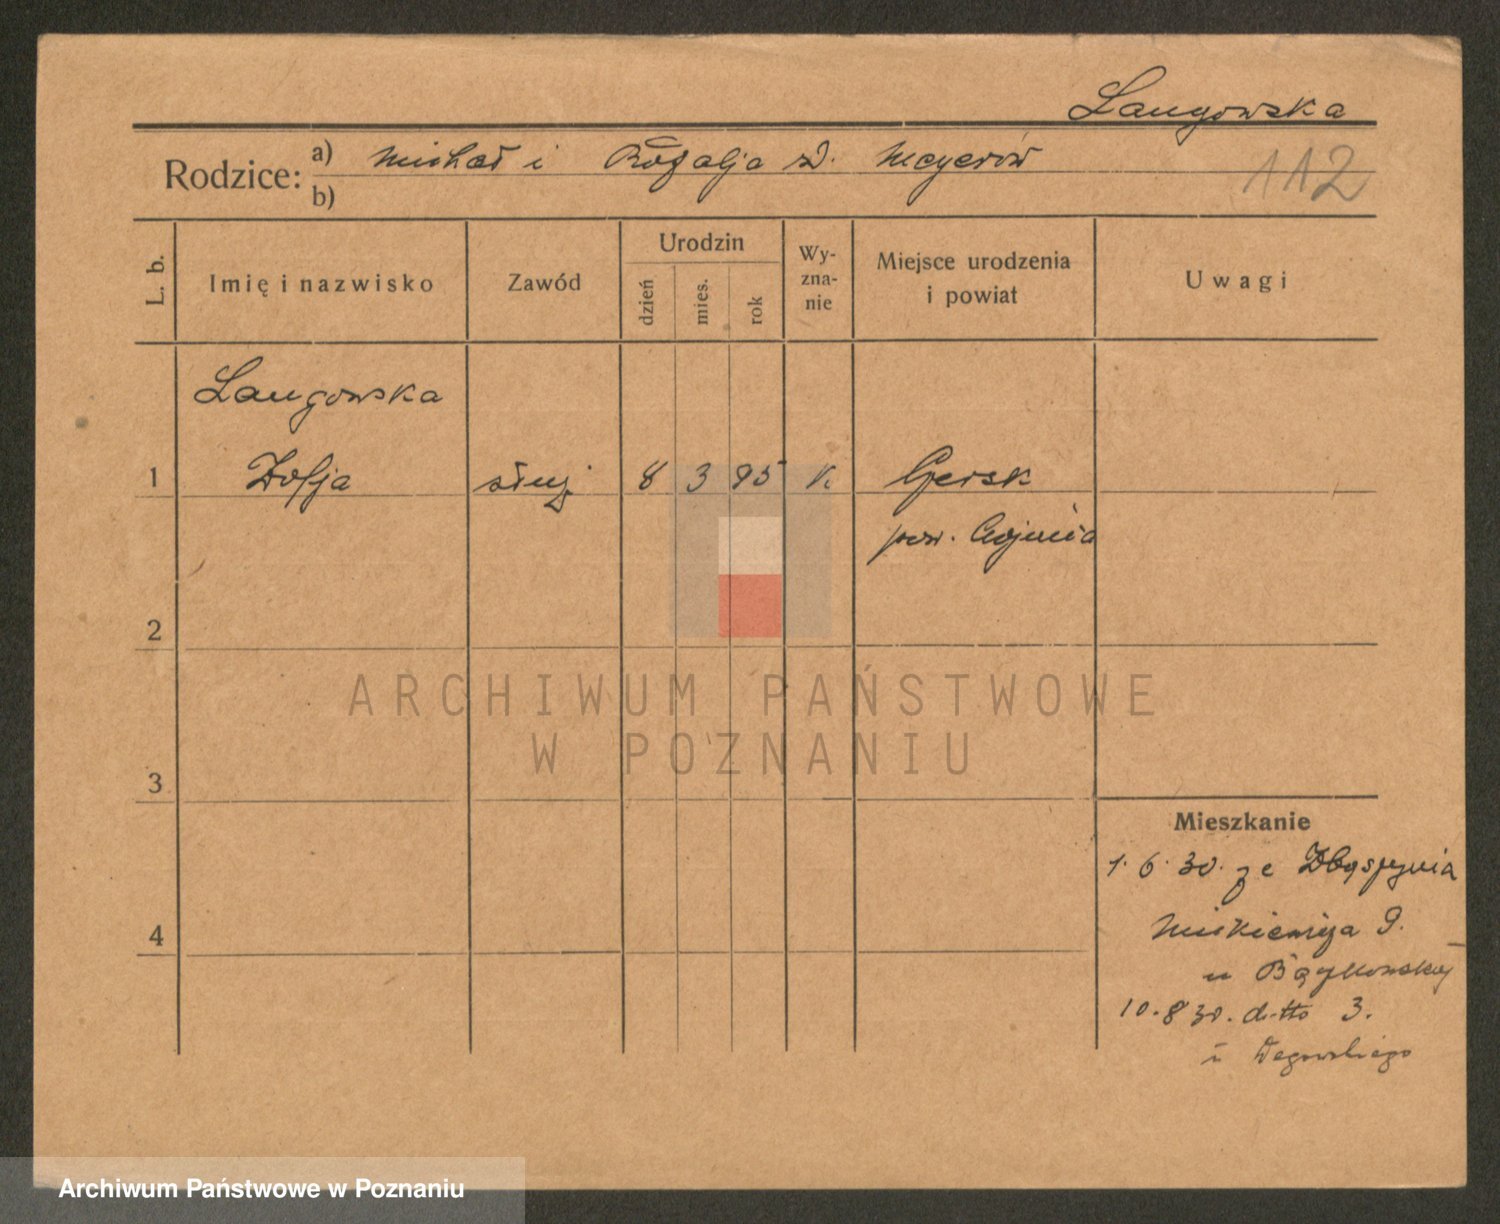 Langowska
Rodzice: a) Michał i Rozalja z d. Meyerów
b)
112
L. b.
Imię i nazwisko
Zawód
Urodzin
dzień
mies.
rok
Wy-
zna-
nie
Miejsce urodzenia
i powiat
Uwagi
Langowska
1 Zofja służ 8 3 95 k. Czersk
pow. Chojnice
2
3
4
ARCHIWUM PAŃSTWOWE
W POZNANIU
Mieszkanie
1.6.30. ze Zbąszynia
Mickiewicza 9.
u Bączkowskiej
10.8 30. ditto 3.
u
Archiwum Państwowe w Poznaniu